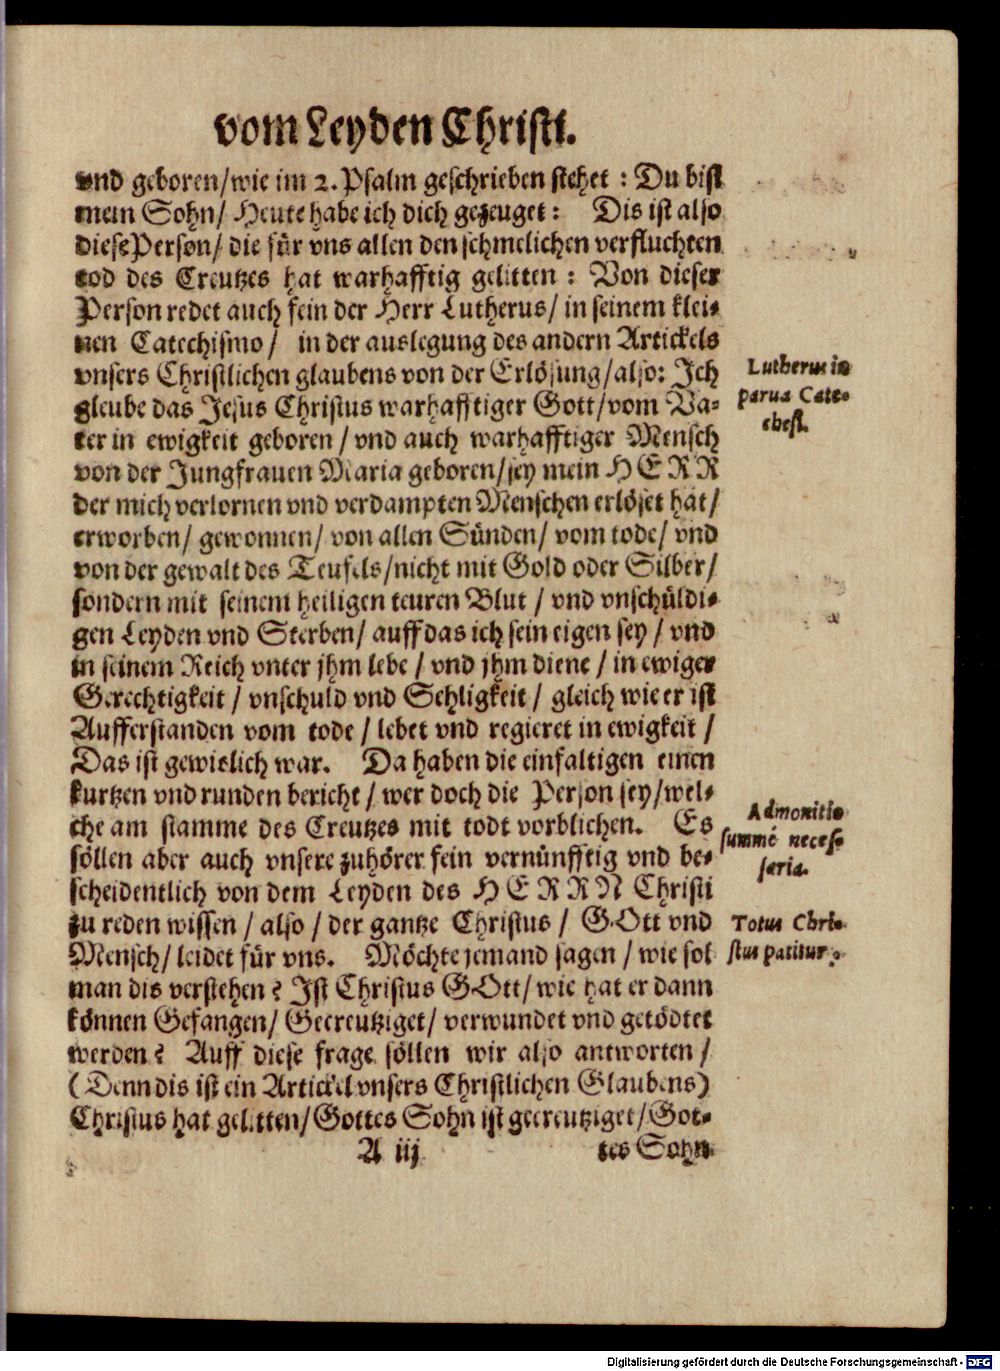 vom Leyden Christi.
vnd geboren/wie im 2. Psalm geschrieben stehet : Du bist
mein Sohn/ Heute habe ich dich gezeuget : Dis ist also
diese Person/ die für vns allen den schmelichen verfluchten
tod des Creutzes hat warhafftig gelitten : Von dieser
Person redet auch fein der Herr Lutherus/ in seinem klei-
nen Catechismo / in der auslegung des andern Artickels
vnsers Christlichen glaubens von der Erlösung/also: Ich
gleube das Jesus Christus warhafftiger Gott/vom Va-
ter in ewigkeit geboren / vnd auch warhafftiger Mensch
von der Jungfrauen Maria geboren/sey mein HERR
der mich verlornen vnd verdampten Menschen erlöset hat/
erworben/ gewonnen/ von allen Sünden/ vom tode/ vnd
von der gewalt des Teufels/nicht mit Gold oder Silber/
sondern mit seinem heiligen teuren Blut / vnd vnschüldi-
gen Leyden vnd Sterben/ auff das ich sein eigen sey / vnd
in seinem Reich vnter jhm lebe / vnd jhm diene / in ewiger
Gerechtigkeit / vnschuld vnd Sehligkeit / gleich wie er ist
Aufferstanden vom tode / lebet vnd regieret in ewigkeit /
Das ist gewislich war. Da haben die einfaltigen einen
kurtzen vnd runden bericht / wer doch die Person sey/wel-
che am stamme des Creutzes mit todt vorblichen. Es
söllen aber auch vnsere zuhörer fein vernünfftig vnd be-
scheidentlich von dem Leyden des HERRN Christi
zu reden wissen / also / der gantze Christus / GOtt vnd
Mensch/ leidet für vns. Möchte jemand sagen / wie sol
man dis verstehen? Ist Christus GOtt/ wie hat er dann
können Gefangen/ Gecreutziget/ verwundet vnd getödtet
werden? Auff diese frage söllen wir also antworten /
(Denn dis ist ein Artickel vnsers Christlichen Glaubens)
Christus hat gelitten/Gottes Sohn ist gecreutziget/Got-
A iij
tes Sohn
Lutherus in
parua Cate-
chesi.
Admonitio
summè neces-
saria.
Totus Chri-
stus patitur.
Digitalisierung gefördert durch die Deutsche Forschungsgemeinschaft - DFG